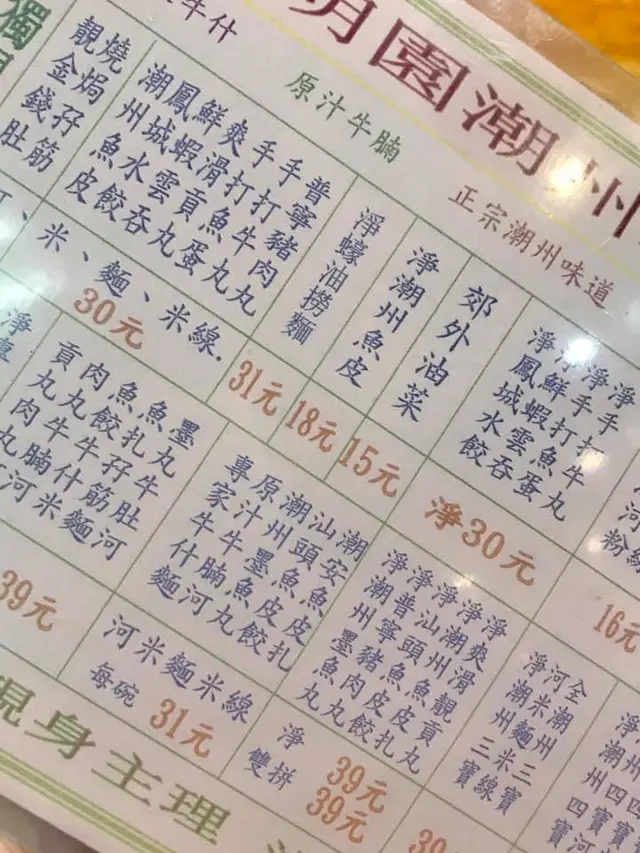 明園潮州
正宗潮州味道
原汁牛腩
牛什
獨
淨手打牛丸
淨手打魚蛋
淨鮮蝦雲吞
淨鳳城水餃
淨30元
郊外油菜
15元
淨潮州魚皮
18元
淨蠔油撈麵
31元
普寧豬肉丸
手打牛丸
手打魚蛋
爽滑貢丸
鮮蝦雲吞
鳳城水餃
潮州魚皮
燒焗孖筋
靚金錢肚
、米、麵、米線.
30元
16元
全潮州三寶
河米麵米線
淨潮州三寶
淨潮州四寶
淨爽滑貢丸
淨潮州靚魚扎
淨汕頭魚皮餃
淨普寧豬肉丸
淨潮州墨魚丸
淨 39元
雙拼 39元
潮安魚皮扎
汕頭魚皮餃
潮州墨魚丸
原汁牛腩河
專家牛什麵
河米麵米線
每碗 31元
墨丸牛肚河
魚扎孖筋麵
魚餃牛什米
肉丸牛腩河
39元
現身主理